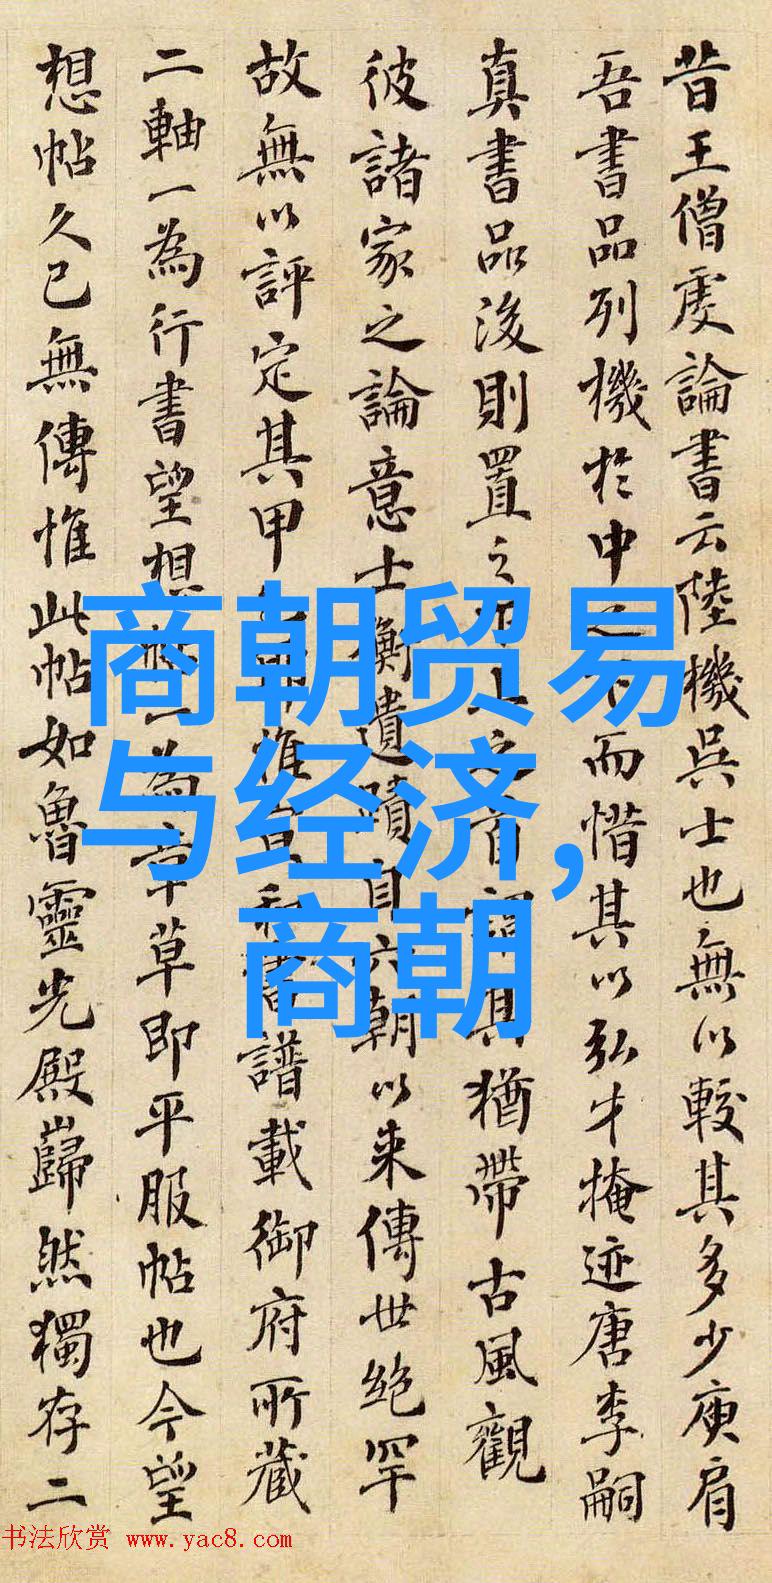 昔王僧虔論書云陸機吳士也無以較其多少庾肩
吾書品列機於中之下而惜其以弘才掩迹唐李嗣
真書品後則置之下上之首謂其猶帶古風觀
彼諸家之論意士衡遺蹟自六朝以來傳世絶罕
故無以評定其甲惟宣和書譜載御府所藏
二軸一為行書望想帖一為章草即平服帖也今望
想帖久已無傳惟此帖如魯靈光殿巋然獨存二
商朝贸易
与经济,
商朝
书法欣赏 www.yac8.com